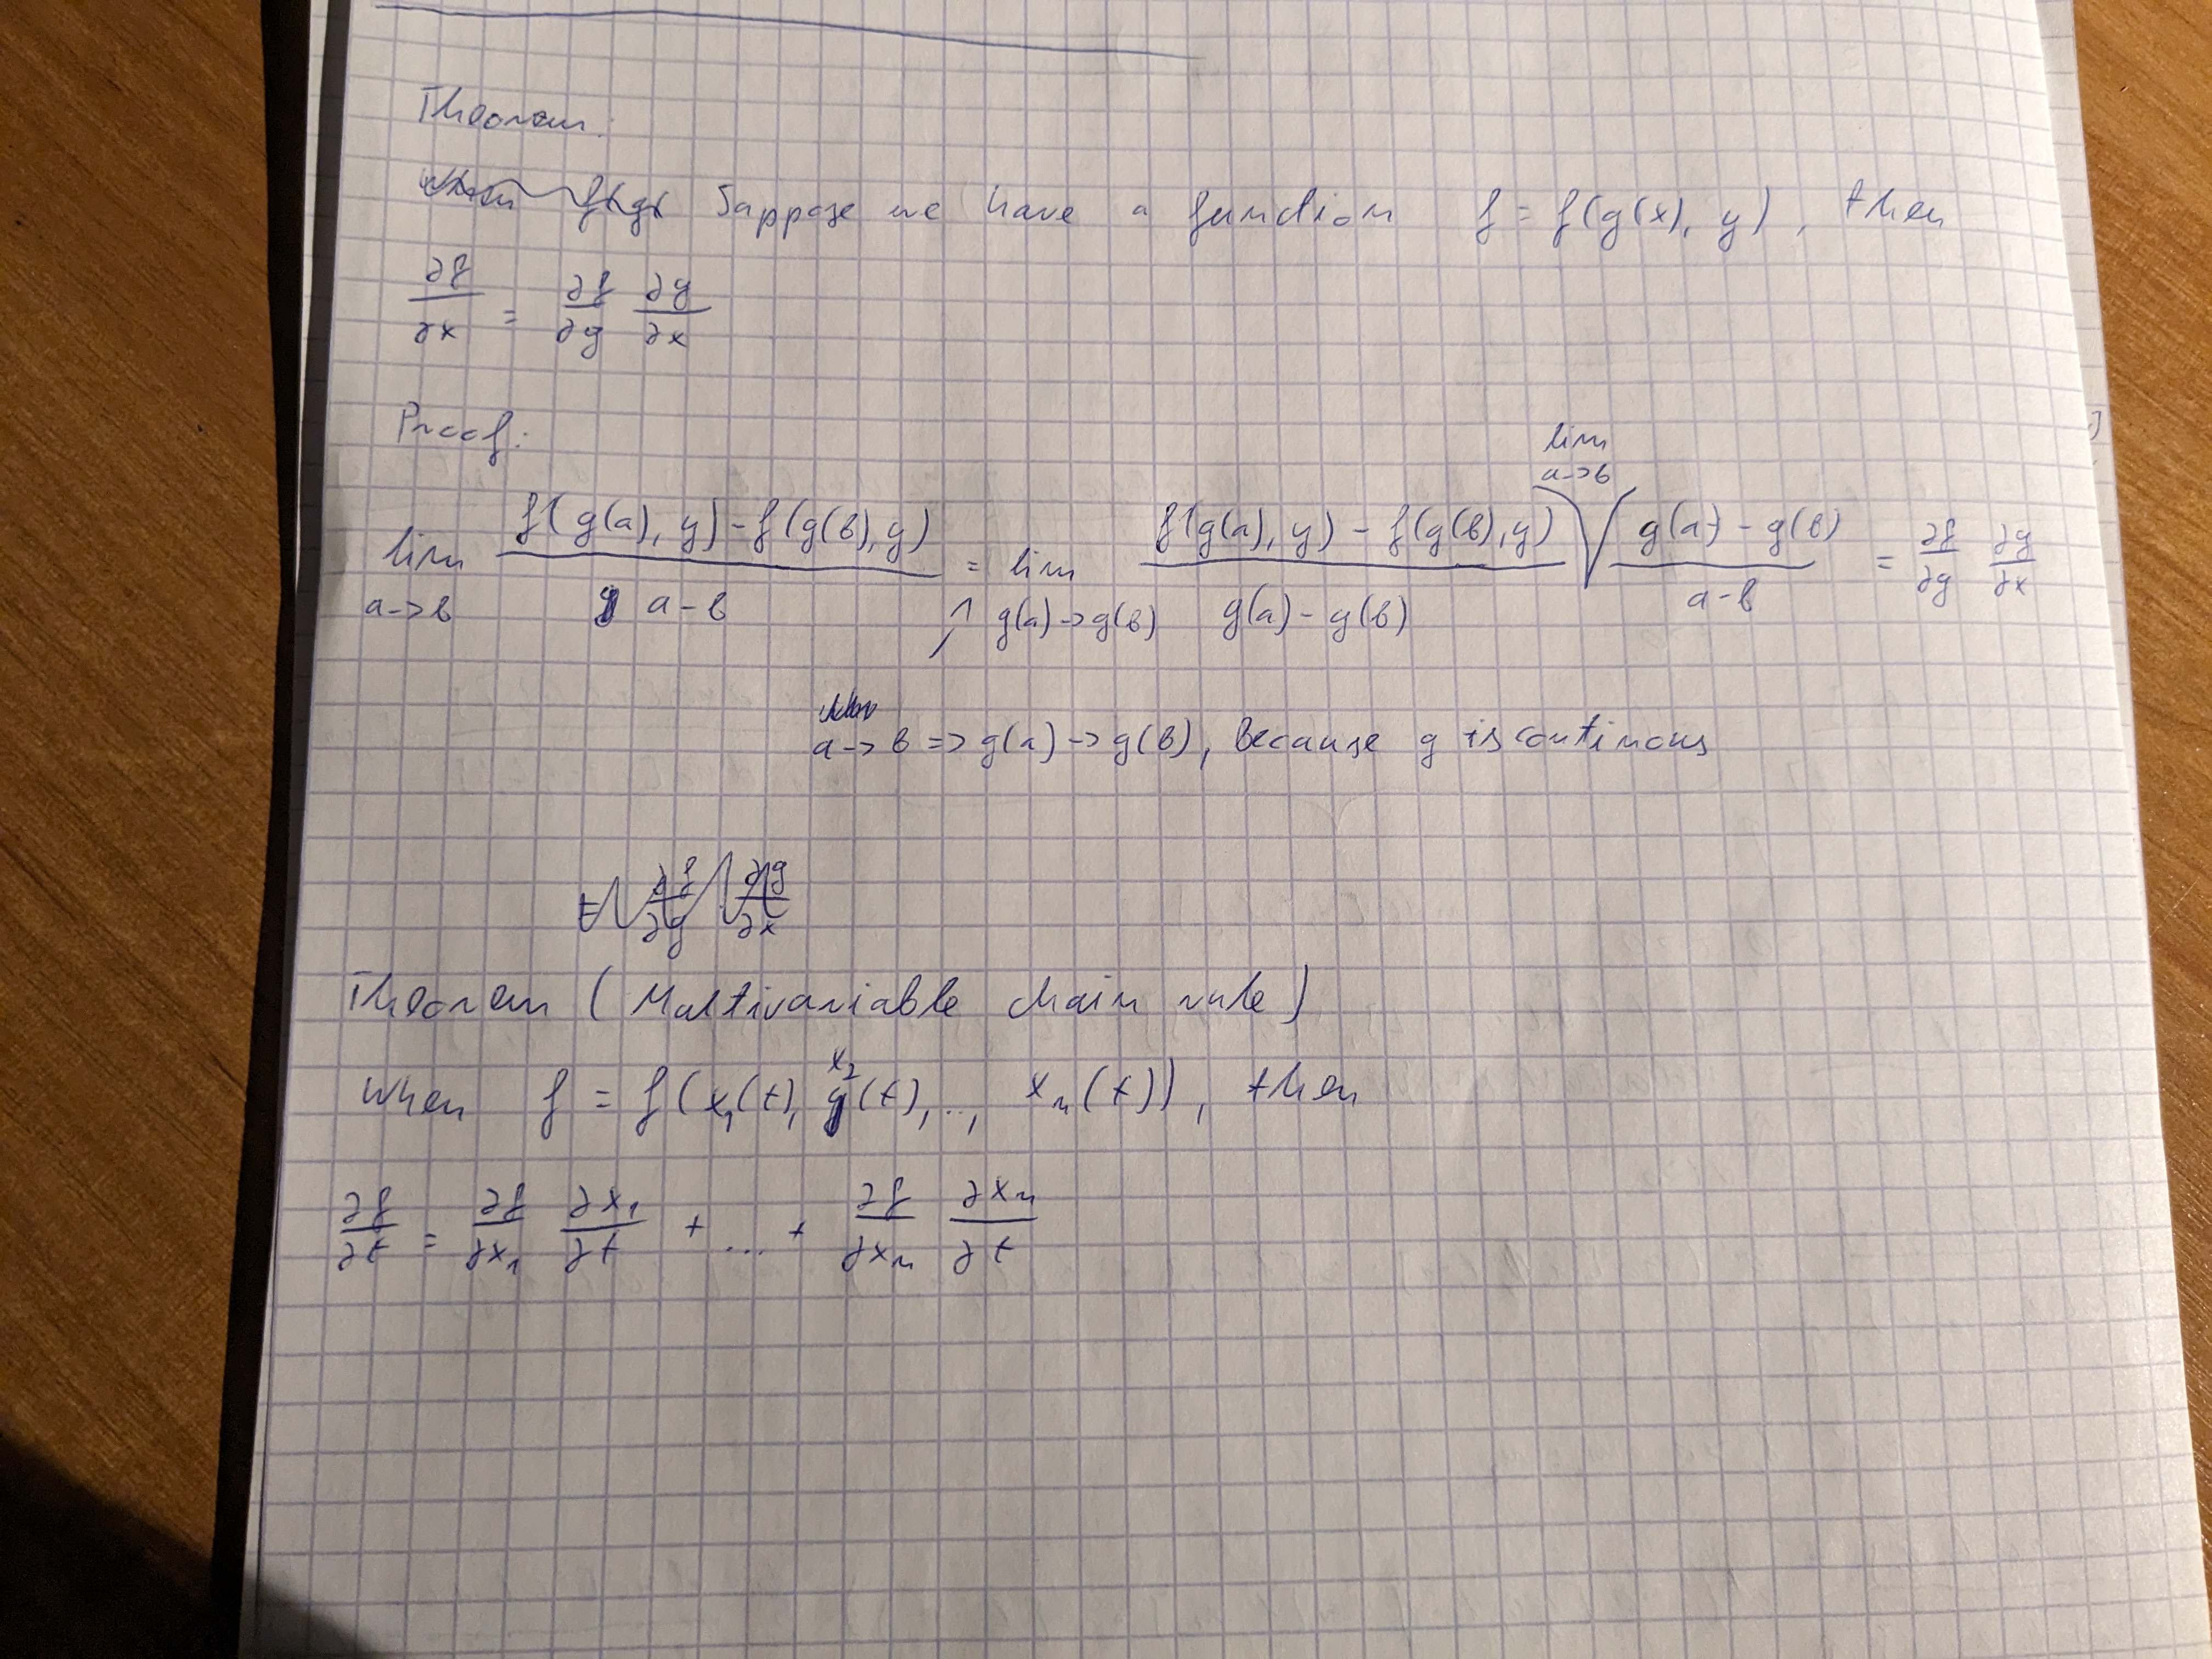 Theorem:
Suppose we have a function f = f(g(x), y), then
∂f/∂x = ∂f/∂g ∂g/∂x
Proof:
lim a->b (f(g(a), y) - f(g(b), y))/(a-b) = lim g(a)->g(b) (f(g(a), y) - f(g(b), y))/(g(a) - g(b)) lim a->b (g(a) - g(b))/(a-b) = ∂f/∂g ∂g/∂x
a->b => g(a)->g(b), because g is continous
∂f/∂g ∂g/∂x
Theorem (Multivariable chain rule)
When f = f(x₁(t), x₂(t), ..., xₙ(t)), then
∂f/∂t = ∂f/∂x₁ ∂x₁/∂t + ... + ∂f/∂xₙ ∂xₙ/∂t